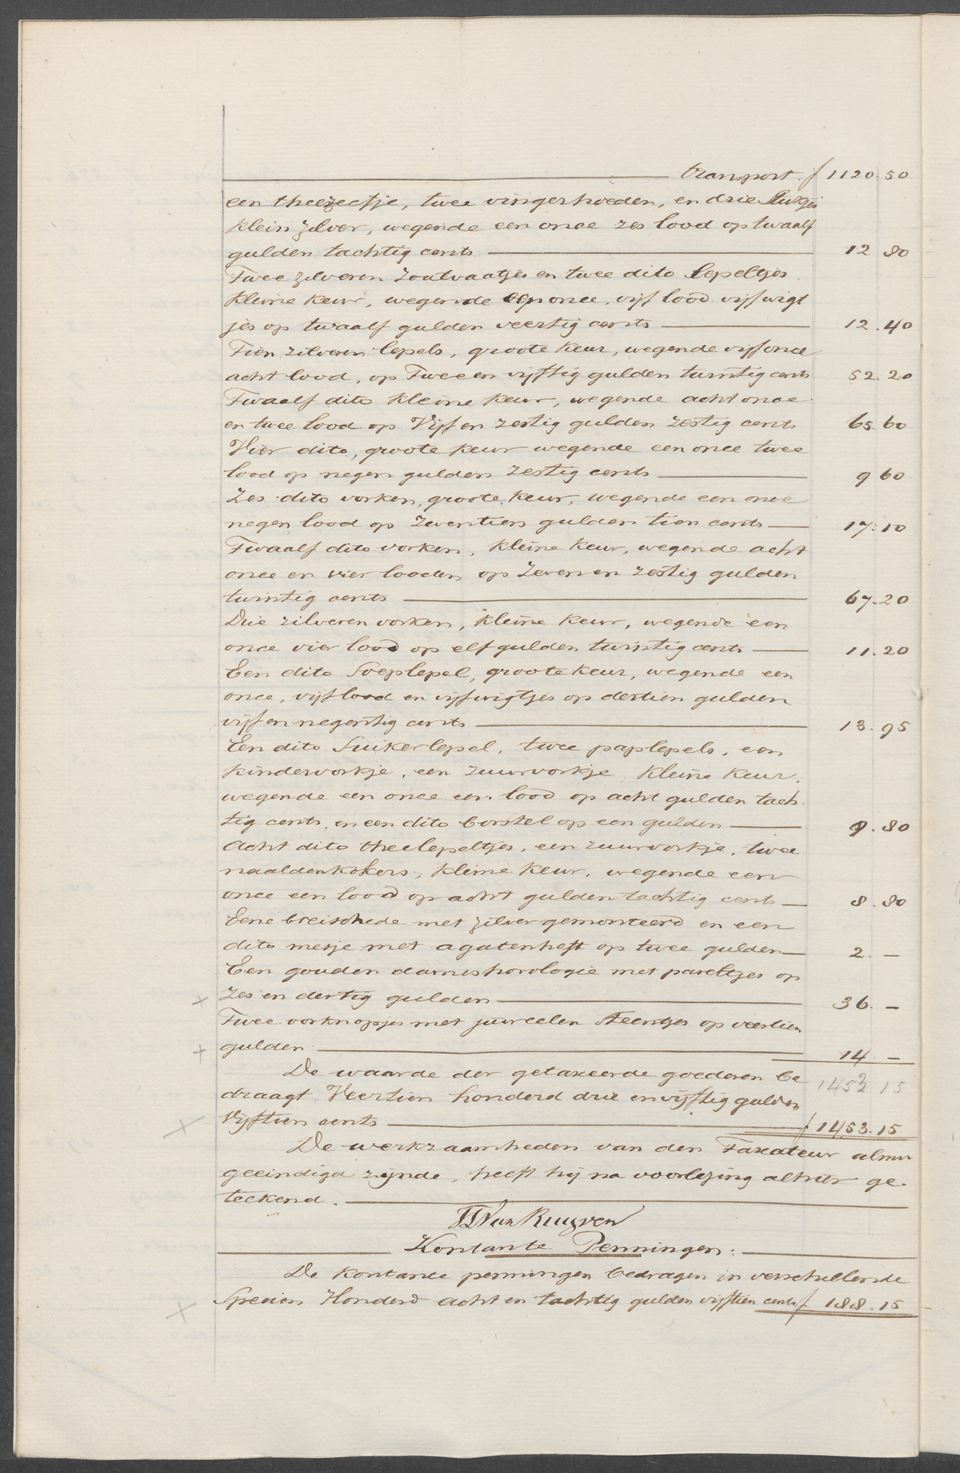 transport f 1120.50
een theezeefje, twee vingerhoeden, en drie stukjes
klein zilver, wegende een once zes lood op twaalf
gulden tachtig cents 12 80
Twee zilveren zoutvaatjes en twee dito lepeltjes
kleine keur, wegende een once, vijf lood vijf wigt
jes op twaalf gulden veertig cents 12.40
Tien zilveren lepels, groote keur, wegende vijf once
acht lood, op Twee en vijftig gulden twintig cents 52.20
Twaalf dito kleine keur, wegende acht once
en twee lood op Vijf en zestig gulden zestig cents 65.60
Vier dito, groote keur wegende een once twee
lood op negen gulden zestig cents 9 60
Zes dito vorken, groote keur, wegende een once
negen lood op zeventien gulden tien cents 17.10
Twaalf dito vorken, kleine keur, wegende acht
once en vier looden op zeven en zestig gulden
twintig cents 67.20
Drie zilveren vorken, kleine keur, wegende een
once vier lood op elf gulden twintig cents 11.20
Een dito Soeplepel, groote keur, wegende een
once, vijf lood en vijf wigtjes op dertien gulden
vijf en negentig cents 13.95
Een dito Suikerlepel, twee paplepels, een
kindervorkje, een zuurvorkje kleine keur,
wegende een once een lood op acht gulden tach
tig cents, en een dito borstel op een gulden 9.80
Acht dito theelepeltjes, een zuurvorkje, twee
naaldenkokers, kleine keur, wegende een
once een lood op acht gulden tachtig cents 8.80
Eene breischede met zilver gemonteerd en een
dito mesje met agatenheft op twee gulden 2.–
Een gouden dameshorologie met pareltjes op
zes en dertig gulden 36.–
Twee oorknopjes met juweelen steentjes op veertien
gulden 14.–
De waarde der getaxeerde goederen be 1453 15
draagt Veertien honderd drie en vijftig gulden
Vijftien cents f 1453.15
De werkzaamheden van den Taxateur alsnu
geeindigd zijnde, heeft hij na voorlezing alhier ge-
teekend.
Van Ruyven
Kontante Penningen:
De kontante penningen bedragen in verschillende
Specien Honderd acht en tachtig gulden vijftien cents f 188.15